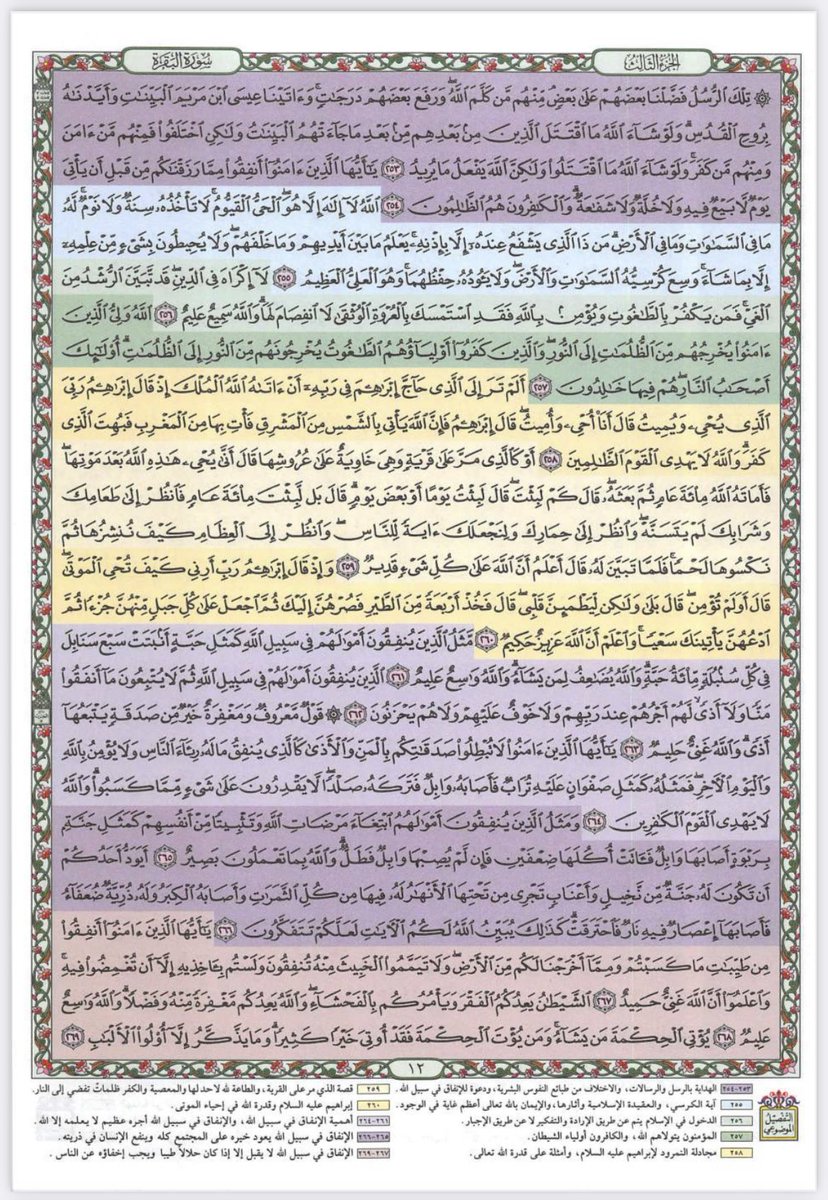 الجزء الثالث
سورة البقرة
۞ تِلْكَ الرُّسُلُ فَضَّلْنَا بَعْضَهُمْ عَلَىٰ بَعْضٍ مِّنْهُم مَّن كَلَّمَ اللَّهُ وَرَفَعَ بَعْضَهُمْ دَرَجَاتٍ وَءَاتَيْنَا عِيسَى ابْنَ مَرْيَمَ الْبَيِّنَاتِ وَأَيَّدْنَاهُ
بِرُوحِ الْقُدُسِ وَلَوْ شَاءَ اللَّهُ مَا اقْتَتَلَ الَّذِينَ مِنْ بَعْدِهِم مِّنْ بَعْدِ مَا جَاءَتْهُمُ الْبَيِّنَاتُ وَلَٰكِنِ اخْتَلَفُوا فَمِنْهُم مَّنْ ءَامَنَ
وَمِنْهُم مَّن كَفَرَ وَلَوْ شَاءَ اللَّهُ مَا اقْتَتَلُوا وَلَٰكِنَّ اللَّهَ يَفْعَلُ مَا يُرِيدُ ٢٥٣ يَٰأَيُّهَا الَّذِينَ ءَامَنُوا أَنفِقُوا مِمَّا رَزَقْنَاكُم مِّن قَبْلِ أَن يَأْتِيَ
يَوْمٌ لَّا بَيْعٌ فِيهِ وَلَا خُلَّةٌ وَلَا شَفَاعَةٌ وَالْكَافِرُونَ هُمُ الظَّالِمُونَ ٢٥٤ اللَّهُ لَا إِلَٰهَ إِلَّا هُوَ الْحَيُّ الْقَيُّومُ لَا تَأْخُذُهُ سِنَةٌ وَلَا نَوْمٌ لَّهُ
مَا فِي السَّمَاوَاتِ وَمَا فِي الْأَرْضِ مَن ذَا الَّذِي يَشْفَعُ عِندَهُ إِلَّا بِإِذْنِهِ يَعْلَمُ مَا بَيْنَ أَيْدِيهِمْ وَمَا خَلْفَهُمْ وَلَا يُحِيطُونَ بِشَيْءٍ مِّنْ عِلْمِهِ
إِلَّا بِمَا شَاءَ وَسِعَ كُرْسِيُّهُ السَّمَاوَاتِ وَالْأَرْضَ وَلَا يَئُودُهُ حِفْظُهُمَا وَهُوَ الْعَلِيُّ الْعَظِيمُ ٢٥٥ لَا إِكْرَاهَ فِي الدِّينِ قَد تَّبَيَّنَ الرُّشْدُ مِنَ
الْغَيِّ فَمَن يَكْفُرْ بِالطَّاغُوتِ وَيُؤْمِنْ بِاللَّهِ فَقَدِ اسْتَمْسَكَ بِالْعُرْوَةِ الْوُثْقَىٰ لَا انفِصَامَ لَهَا وَاللَّهُ سَمِيعٌ عَلِيمٌ ٢٥٦ اللَّهُ وَلِيُّ الَّذِينَ
ءَامَنُوا يُخْرِجُهُم مِّنَ الظُّلُمَاتِ إِلَى النُّورِ وَالَّذِينَ كَفَرُوا أَوْلِيَاؤُهُمُ الطَّاغُوتُ يُخْرِجُونَهُم مِّنَ النُّورِ إِلَى الظُّلُمَاتِ أُولَٰئِكَ
أَصْحَابُ النَّارِ هُمْ فِيهَا خَالِدُونَ ٢٥٧ أَلَمْ تَرَ إِلَى الَّذِي حَاجَّ إِبْرَاهِيمَ فِي رَبِّهِ أَنْ ءَاتَاهُ اللَّهُ الْمُلْكَ إِذْ قَالَ إِبْرَاهِيمُ رَبِّيَ
الَّذِي يُحْيِي وَيُمِيتُ قَالَ أَنَا أُحْيِي وَأُمِيتُ قَالَ إِبْرَاهِيمُ فَإِنَّ اللَّهَ يَأْتِي بِالشَّمْسِ مِنَ الْمَشْرِقِ فَأْتِ بِهَا مِنَ الْمَغْرِبِ فَبُهِتَ الَّذِي
كَفَرَ وَاللَّهُ لَا يَهْدِي الْقَوْمَ الظَّالِمِينَ ٢٥٨ أَوْ كَالَّذِي مَرَّ عَلَىٰ قَرْيَةٍ وَهِيَ خَاوِيَةٌ عَلَىٰ عُرُوشِهَا قَالَ أَنَّىٰ يُحْيِي هَٰذِهِ اللَّهُ بَعْدَ مَوْتِهَا
فَأَمَاتَهُ اللَّهُ مِائَةَ عَامٍ ثُمَّ بَعَثَهُ قَالَ كَمْ لَبِثْتَ قَالَ لَبِثْتُ يَوْمًا أَوْ بَعْضَ يَوْمٍ قَالَ بَل لَّبِثْتَ مِائَةَ عَامٍ فَانظُرْ إِلَىٰ طَعَامِكَ
وَشَرَابِكَ لَمْ يَتَسَنَّهْ وَانظُرْ إِلَىٰ حِمَارِكَ وَلِنَجْعَلَكَ ءَايَةً لِّلنَّاسِ وَانظُرْ إِلَى الْعِظَامِ كَيْفَ نُنشِزُهَا ثُمَّ
نَكْسُوهَا لَحْمًا فَلَمَّا تَبَيَّنَ لَهُ قَالَ أَعْلَمُ أَنَّ اللَّهَ عَلَىٰ كُلِّ شَيْءٍ قَدِيرٌ ٢٥٩ وَإِذْ قَالَ إِبْرَاهِيمُ رَبِّ أَرِنِي كَيْفَ تُحْيِي الْمَوْتَىٰ
قَالَ أَوَلَمْ تُؤْمِن قَالَ بَلَىٰ وَلَٰكِن لِّيَطْمَئِنَّ قَلْبِي قَالَ فَخُذْ أَرْبَعَةً مِّنَ الطَّيْرِ فَصُرْهُنَّ إِلَيْكَ ثُمَّ اجْعَلْ عَلَىٰ كُلِّ جَبَلٍ مِّنْهُنَّ جُزْءًا ثُمَّ
ادْعُهُنَّ يَأْتِينَكَ سَعْيًا وَاعْلَمْ أَنَّ اللَّهَ عَزِيزٌ حَكِيمٌ ٢٦٠ مَّثَلُ الَّذِينَ يُنفِقُونَ أَمْوَالَهُمْ فِي سَبِيلِ اللَّهِ كَمَثَلِ حَبَّةٍ أَنْبَتَتْ سَبْعَ سَنَابِلَ
فِي كُلِّ سُنْبُلَةٍ مِّائَةُ حَبَّةٍ وَاللَّهُ يُضَاعِفُ لِمَن يَشَاءُ وَاللَّهُ وَاسِعٌ عَلِيمٌ ٢٦١ الَّذِينَ يُنفِقُونَ أَمْوَالَهُمْ فِي سَبِيلِ اللَّهِ ثُمَّ لَا يُتْبِعُونَ مَا أَنفَقُوا
مَنًّا وَلَا أَذًى لَّهُمْ أَجْرُهُمْ عِندَ رَبِّهِمْ وَلَا خَوْفٌ عَلَيْهِمْ وَلَا هُمْ يَحْزَنُونَ ٢٦٢ ۞ قَوْلٌ مَّعْرُوفٌ وَمَغْفِرَةٌ خَيْرٌ مِّن صَدَقَةٍ يَتْبَعُهَا
أَذًى وَاللَّهُ غَنِيٌّ حَلِيمٌ ٢٦٣ يَٰأَيُّهَا الَّذِينَ ءَامَنُوا لَا تُبْطِلُوا صَدَقَاتِكُم بِالْمَنِّ وَالْأَذَىٰ كَالَّذِي يُنفِقُ مَالَهُ رِئَاءَ النَّاسِ وَلَا يُؤْمِنُ بِاللَّهِ
وَالْيَوْمِ الْآخِرِ فَمَثَلُهُ كَمَثَلِ صَفْوَانٍ عَلَيْهِ تُرَابٌ فَأَصَابَهُ وَابِلٌ فَتَرَكَهُ صَلْدًا لَّا يَقْدِرُونَ عَلَىٰ شَيْءٍ مِّمَّا كَسَبُوا وَاللَّهُ
لَا يَهْدِي الْقَوْمَ الْكَافِرِينَ ٢٦٤ وَمَثَلُ الَّذِينَ يُنفِقُونَ أَمْوَالَهُمُ ابْتِغَاءَ مَرْضَاتِ اللَّهِ وَتَثْبِيتًا مِّنْ أَنفُسِهِمْ كَمَثَلِ جَنَّةٍ
بِرَبْوَةٍ أَصَابَهَا وَابِلٌ فَئَاتَتْ أُكُلَهَا ضِعْفَيْنِ فَإِن لَّمْ يُصِبْهَا وَابِلٌ فَطَلٌّ وَاللَّهُ بِمَا تَعْمَلُونَ بَصِيرٌ ٢٦٥ أَيَوَدُّ أَحَدُكُمْ
أَن تَكُونَ لَهُ جَنَّةٌ مِّن نَّخِيلٍ وَأَعْنَابٍ تَجْرِي مِن تَحْتِهَا الْأَنْهَارُ لَهُ فِيهَا مِن كُلِّ الثَّمَرَاتِ وَأَصَابَهُ الْكِبَرُ وَلَهُ ذُرِّيَّةٌ ضُعَفَاءُ
فَأَصَابَهَا إِعْصَارٌ فِيهِ نَارٌ فَاحْتَرَقَتْ كَذَٰلِكَ يُبَيِّنُ اللَّهُ لَكُمُ الْآيَاتِ لَعَلَّكُمْ تَتَفَكَّرُونَ ٢٦٦ يَٰأَيُّهَا الَّذِينَ ءَامَنُوا أَنفِقُوا
مِن طَيِّبَاتِ مَا كَسَبْتُمْ وَمِمَّا أَخْرَجْنَا لَكُم مِّنَ الْأَرْضِ وَلَا تَيَمَّمُوا الْخَبِيثَ مِنْهُ تُنفِقُونَ وَلَسْتُم بِئَاخِذِيهِ إِلَّا أَن تُغْمِضُوا فِيهِ
وَاعْلَمُوا أَنَّ اللَّهَ غَنِيٌّ حَمِيدٌ ٢٦٧ الشَّيْطَانُ يَعِدُكُمُ الْفَقْرَ وَيَأْمُرُكُم بِالْفَحْشَاءِ وَاللَّهُ يَعِدُكُم مَّغْفِرَةً مِّنْهُ وَفَضْلًا وَاللَّهُ وَاسِعٌ
عَلِيمٌ ٢٦٨ يُؤْتِي الْحِكْمَةَ مَن يَشَاءُ وَمَن يُؤْتَ الْحِكْمَةَ فَقَدْ أُوتِيَ خَيْرًا كَثِيرًا وَمَا يَذَّكَّرُ إِلَّا أُولُوا الْأَلْبَابِ ٢٦٩
١٢
التفصيل الموضوعي
٢٥٣-٢٥٤ الهداية بالرسل والرسالات، والاختلاف من طبائع النفوس البشرية، ودعوة للإنفاق في سبيل الله.
٢٥٥ آية الكرسي، والعقيدة الإسلامية وآثارها، والإيمان بالله تعالى أعظم غاية في الوجود.
٢٥٦ الدخول في الإسلام يتم عن طريق الإرادة والتفكير لا عن طريق الإجبار.
٢٥٧ المؤمنون يتولاهم الله، والكافرون أولياء الشيطان.
٢٥٨ مجادلة النمرود لإبراهيم عليه السلام، وأمثلة على قدرة الله تعالى.
٢٥٩ قصة الذي مر على القرية، والطاعة لله لاحد لها والمعصية والكفر ظلمات تفضي إلى النار.
٢٦٠ إبراهيم عليه السلام وقدرة الله في إحياء الموتى.
٢٦١-٢٦٤ أهمية الإنفاق في سبيل الله، والإنفاق في سبيل الله أجره عظيم لا يعلمه إلا الله.
٢٦٥-٢٦٦ الإنفاق في سبيل الله يعود خيره على المجتمع كله وينفع الإنسان في ذريته.
٢٦٧-٢٦٩ الإنفاق في سبيل الله لا يقبل إلا إذا كان حلالاً طيبا ويجب إخفاؤه عن الناس.